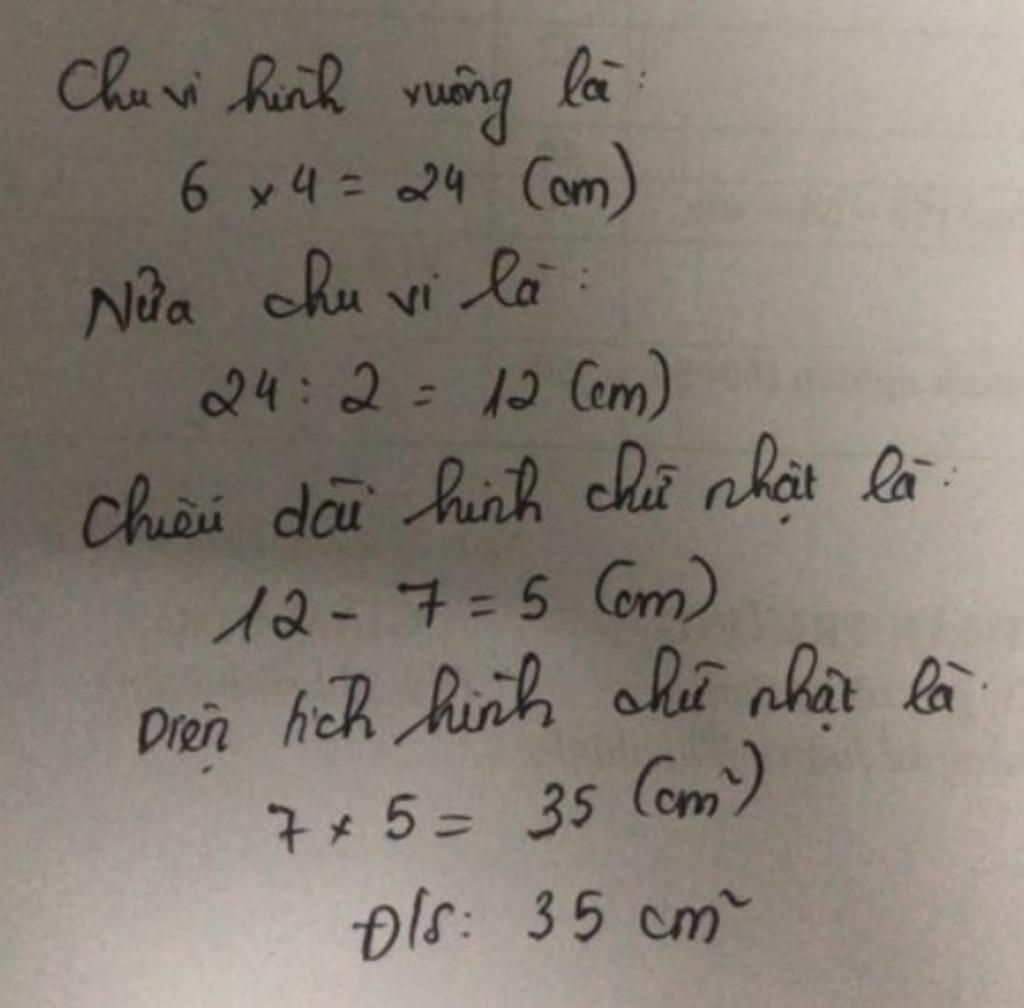 Chu vi hình vuông là:
6 x 4 = 24 (cm)
Nửa chu vi là:
24 : 2 = 12 (cm)
Chiều dài hình chữ nhật là:
12 - 7 = 5 (cm)
Diện tích hình chữ nhật là
7 x 5 = 35 (cm²)
Đ/S: 35 cm²